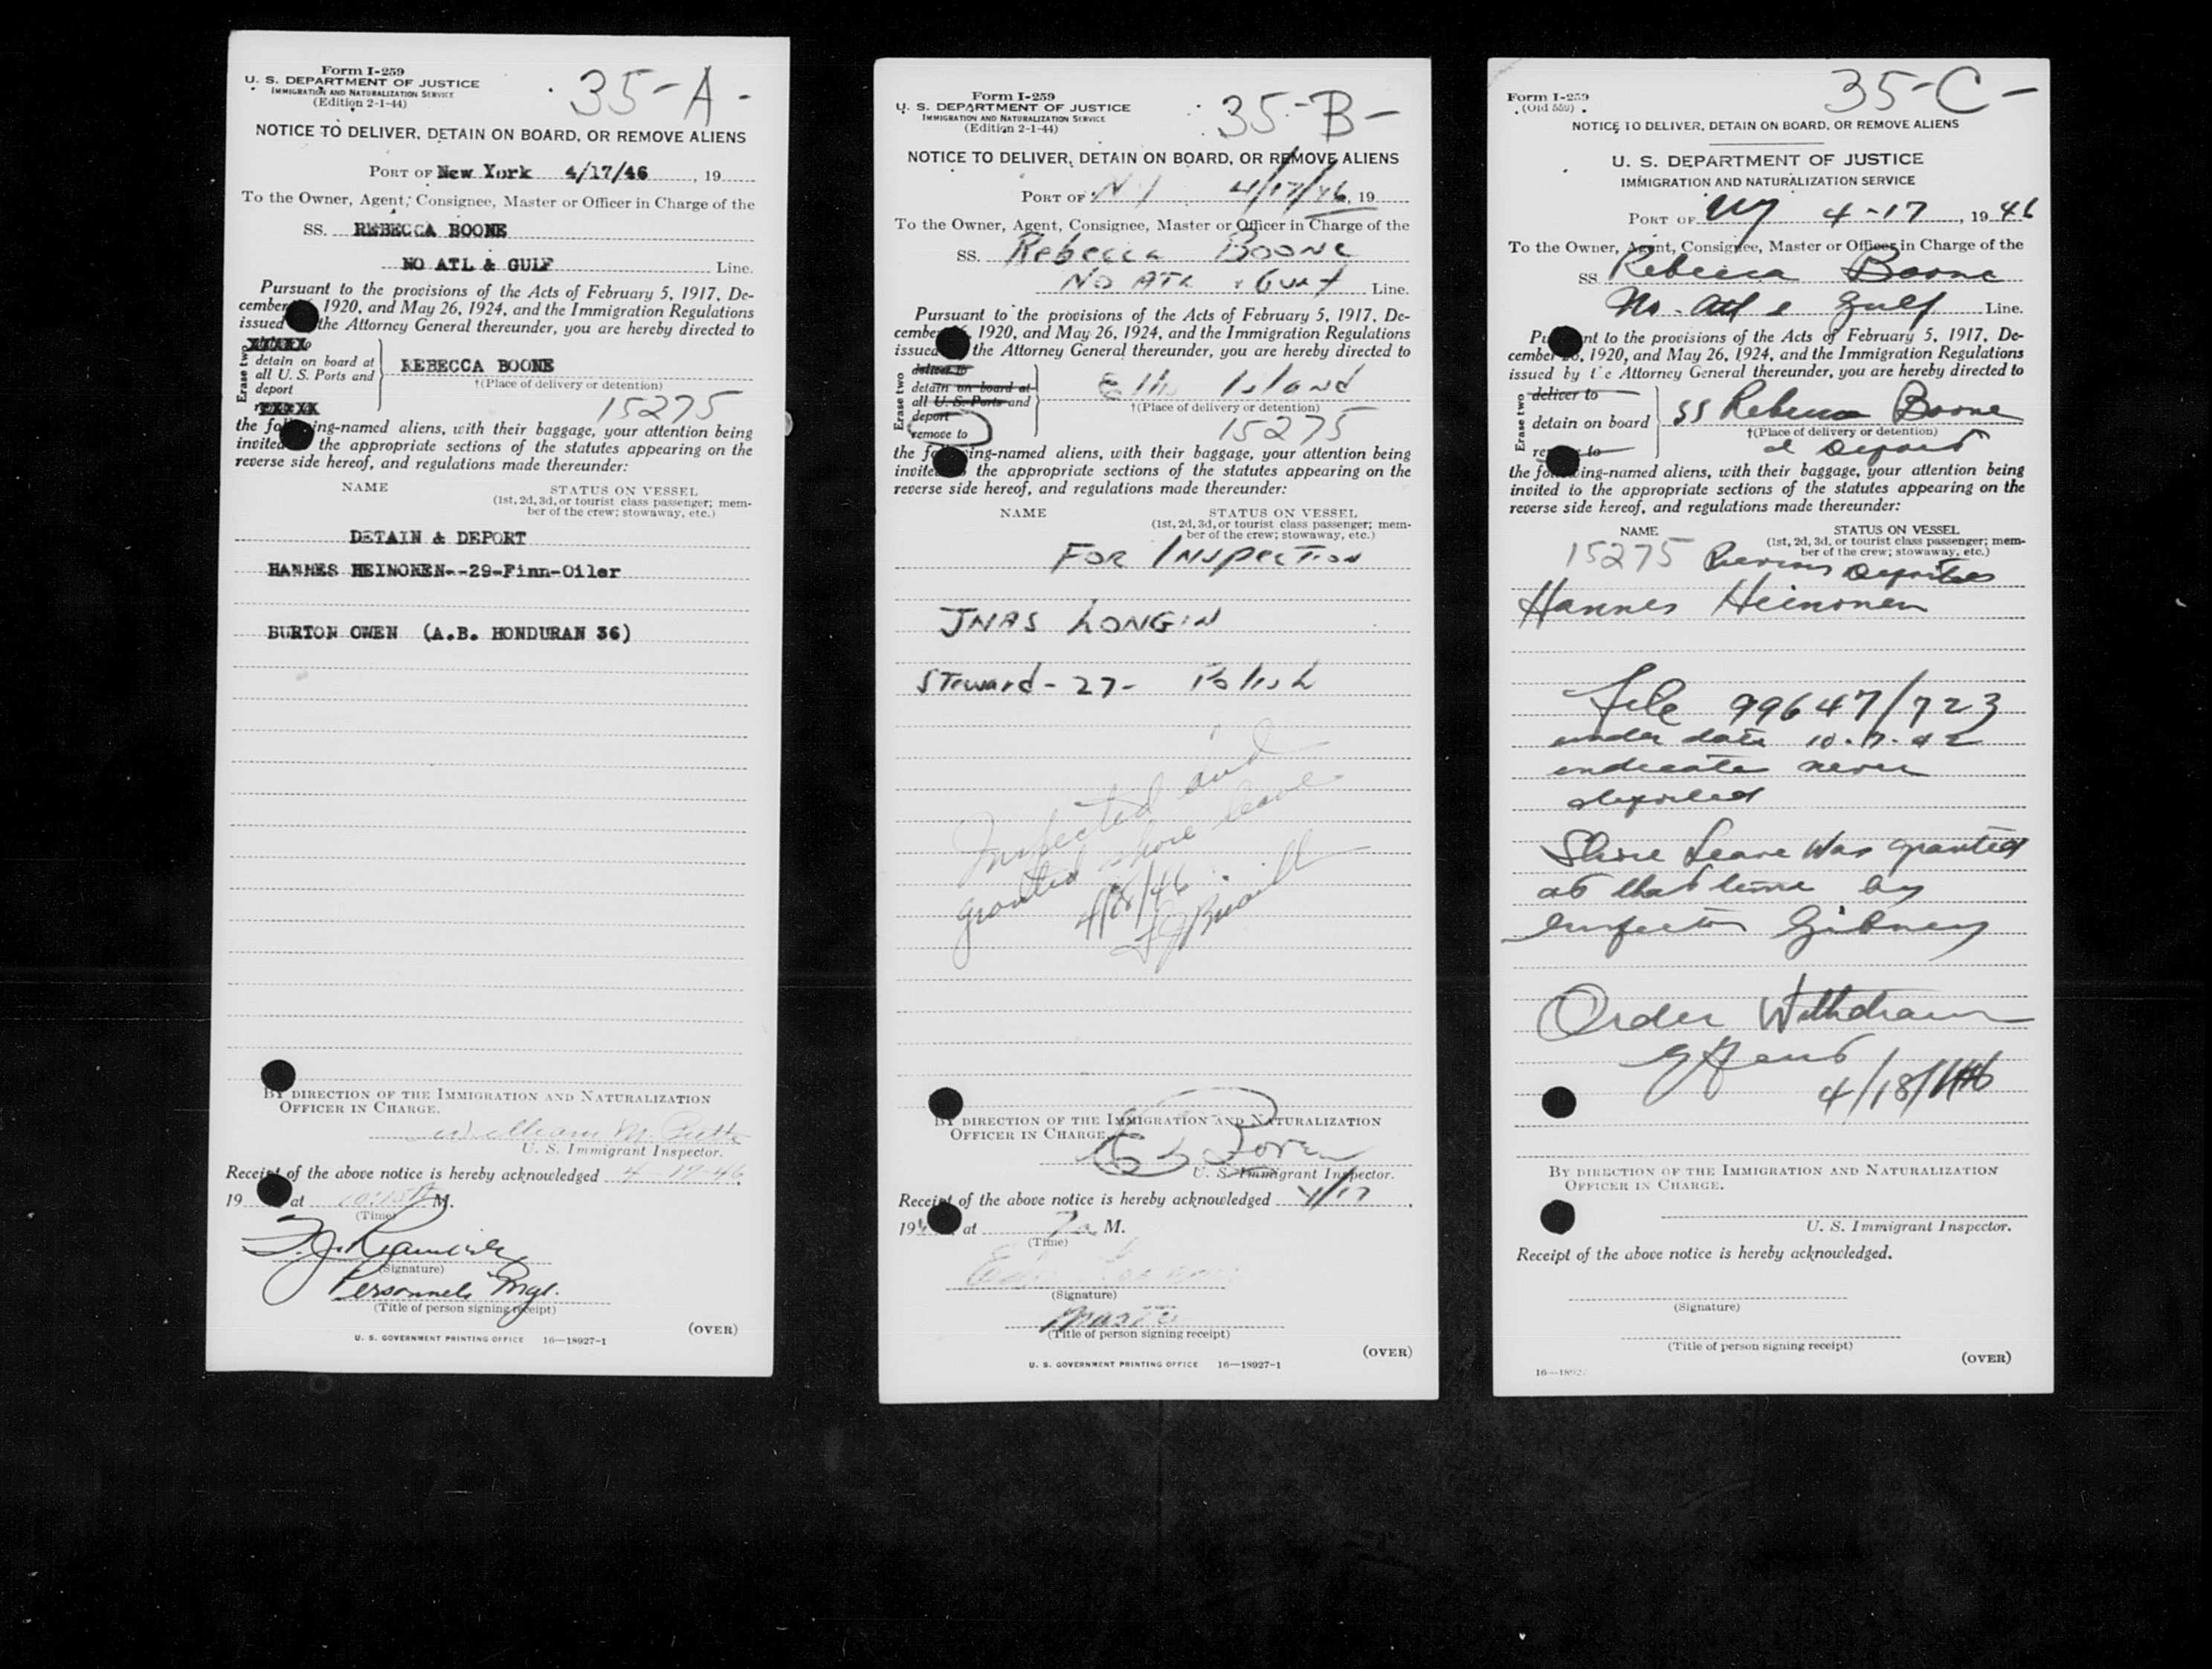 Form I-259
U. S. DEPARTMENT OF JUSTICE
IMMIGRATION AND NATURALIZATION SERVICE
(Edition 2-1-44)
35-A-
NOTICE TO DELIVER, DETAIN ON BOARD, OR REMOVE ALIENS
PORT OF New York 4/17/46, 19
To the Owner, Agent, Consignee, Master or Officer in Charge of the
SS. REBECCA BOONE
NO ATL & GULF Line.
Pursuant to the provisions of the Acts of February 5, 1917, De-
cember 1920, and May 26, 1924, and the Immigration Regulations
issued the Attorney General thereunder, you are hereby directed to
Erase two
detain on board at
all U. S. Ports and
deport
REBECCA BOONE
†(Place of delivery or detention)
15275
the following-named aliens, with their baggage, your attention being
invited the appropriate sections of the statutes appearing on the
reverse side hereof, and regulations made thereunder:
NAME STATUS ON VESSEL
(1st, 2d, 3d, or tourist class passenger; mem-
ber of the crew; stowaway, etc.)
DETAIN & DEPORT
HANNES HEINONEN--29-Finn-Oiler
BURTON OWEN (A.B. HONDURAN 36)
BY DIRECTION OF THE IMMIGRATION AND NATURALIZATION
OFFICER IN CHARGE.
William M.
U. S. Immigrant Inspector.
Receipt of the above notice is hereby acknowledged
19 at M.
(Time)
(Signature)
Personnel Mgr.
(Title of person signing receipt)
(OVER)
U. S. GOVERNMENT PRINTING OFFICE 16—18927-1
Form I-259
U. S. DEPARTMENT OF JUSTICE
IMMIGRATION AND NATURALIZATION SERVICE
(Edition 2-1-44)
35-B-
NOTICE TO DELIVER, DETAIN ON BOARD, OR REMOVE ALIENS
PORT OF N Y 4/17/46, 19
To the Owner, Agent, Consignee, Master or Officer in Charge of the
SS. Rebecca Boone
No Atl & Gulf Line.
Pursuant to the provisions of the Acts of February 5, 1917, De-
cember 1920, and May 26, 1924, and the Immigration Regulations
issued the Attorney General thereunder, you are hereby directed to
Erase two
deliver to
detain on board at
all U. S. Ports and
deport
remove to
Ellis Island
†(Place of delivery or detention)
15275
the following-named aliens, with their baggage, your attention being
invited the appropriate sections of the statutes appearing on the
reverse side hereof, and regulations made thereunder:
NAME STATUS ON VESSEL
(1st, 2d, 3d, or tourist class passenger; mem-
ber of the crew; stowaway, etc.)
FOR INSPECTION
JNAS LONGIN
Steward-27- Polish
Inspected and
granted shore leave
4/18/46
BY DIRECTION OF THE IMMIGRATION AND NATURALIZATION
OFFICER IN CHARGE.
U. S. Immigrant Inspector.
Receipt of the above notice is hereby acknowledged 4/17
194 at 7a M.
(Time)
(Signature)
Master
(Title of person signing receipt)
(OVER)
U. S. GOVERNMENT PRINTING OFFICE 16—18927-1
Form I-259
(Old 559)
35-C-
NOTICE TO DELIVER, DETAIN ON BOARD, OR REMOVE ALIENS
U. S. DEPARTMENT OF JUSTICE
IMMIGRATION AND NATURALIZATION SERVICE
PORT OF NY 4-17, 1946
To the Owner, Agent, Consignee, Master or Officer in Charge of the
SS Rebecca Boone
No. Atl & Gulf Line.
Pursuant to the provisions of the Acts of February 5, 1917, De-
cember 1920, and May 26, 1924, and the Immigration Regulations
issued by the Attorney General thereunder, you are hereby directed to
Erase two
deliver to
detain on board
remove to
SS Rebecca Boone
†(Place of delivery or detention)
& Deport
the following-named aliens, with their baggage, your attention being
invited to the appropriate sections of the statutes appearing on the
reverse side hereof, and regulations made thereunder:
NAME STATUS ON VESSEL
(1st, 2d, 3d, or tourist class passenger; mem-
ber of the crew; stowaway, etc.)
15275 Previous Deportee
Hannes Heinonen
File 99647/723
under date 10.7.42
indicate never
deported
Shore Leave Was granted
at that time by
Inspector Gibney
Order Withdrawn
4/18/46
BY DIRECTION OF THE IMMIGRATION AND NATURALIZATION
OFFICER IN CHARGE.
U. S. Immigrant Inspector.
Receipt of the above notice is hereby acknowledged.
(Signature)
(Title of person signing receipt)
(OVER)